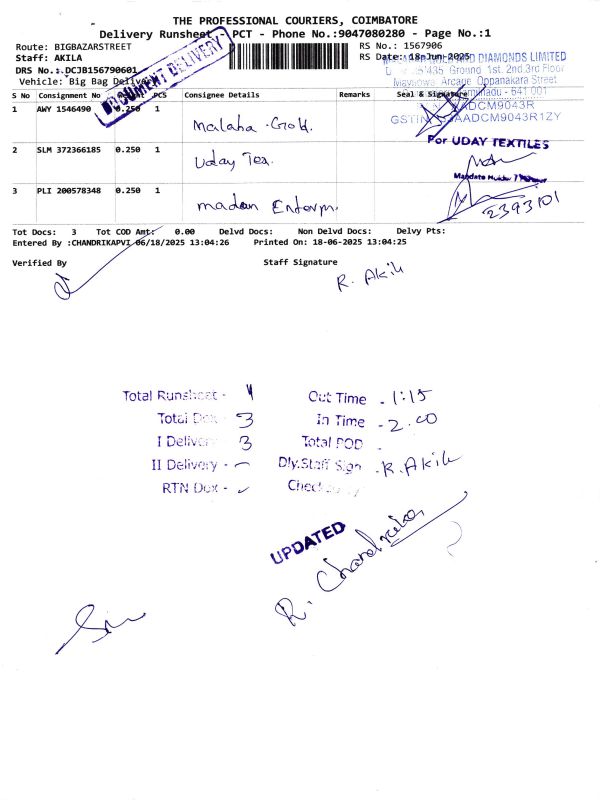 THE PROFESSIONAL COURIERS, COIMBATORE
Delivery Runsheet PCT - Phone No.:9047080280 - Page No.:1
Route: BIGBAZARSTREET RS No.: 1567906
Staff: AKILA RS Date: 18-Jun-2025 DIAMONDS LIMITED
DRS No.: DCJB156790601 Ground 1st, 2nd, 3rd Floor
Vehicle: Big Bag Delivery Arcade Oppanakara Street
DOCUMENT DELIVERY
641 001
S No Consignment No Weight PCS Consignee Details Remarks Seal & Signature
1 AWY 1546490 0.250 1 Malaba Gold.
AADCM9043R
GSTIN AADCM9043R1ZY
For UDAY TEXTILES
2 SLM 372366185 0.250 1 Uday Tex.
3 PLI 200578348 0.250 1 madan Enterpr.
2393101
Tot Docs: 3 Tot COD Amt: 0.00 Delvd Docs: Non Delvd Docs: Delvy Pts:
Entered By :CHANDRIKAPVI 06/18/2025 13:04:26 Printed On: 18-06-2025 13:04:25
Verified By Staff Signature
R. Akila
Total Runsheet - Out Time - 1:15
Total Dox - 3 In Time - 2.00
I Delivery - 3 Total POD -
II Delivery - Dly.Staff Sign - R. Akila
RTN Dox - Checked by
UPDATED
R. Chandrika